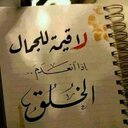 لا قيمة للجمال
إذا انعدم..
الخلق